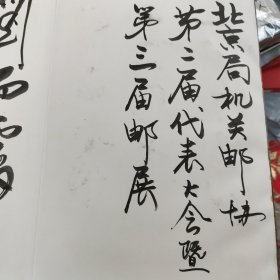 北京局机关邮协
第二届代表大会暨
第三届邮展